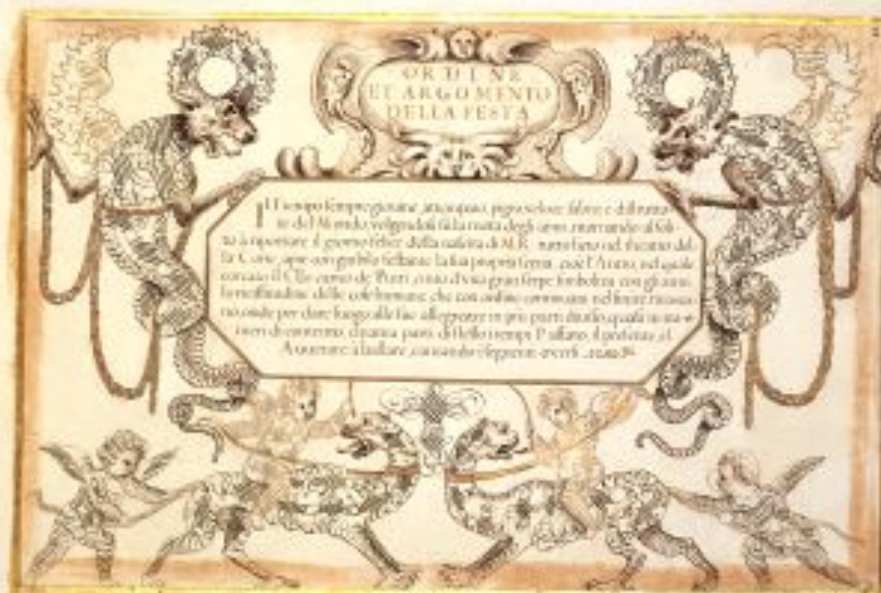 ORDINE
ET ARGOMENTO
DELLA FESTA
Il tempo sempre giovane, attempato, pigro, veloce, fabro, e distrutto-
re del Mondo, volgendosi sù la rota degli anni, tornando al soli-
to à riportare il giorno felice della nascita di M.R. tutto lieto nel theatro del-
la Corte, apre con giubilo festante la sua propria scena, cioè l'Anno, nel quale
con una gran serpe simboliza con gli anni
le vicissitudini delle cose humane, che con ordine continuato nel finire
onde per dare luogo alle sue allegrezze in più parti diviso, quasi in ma-
di contento, chiama parti di stesso i tempi Passato, il presente, et
Avvenire à ballare, cantando i seguenti versi